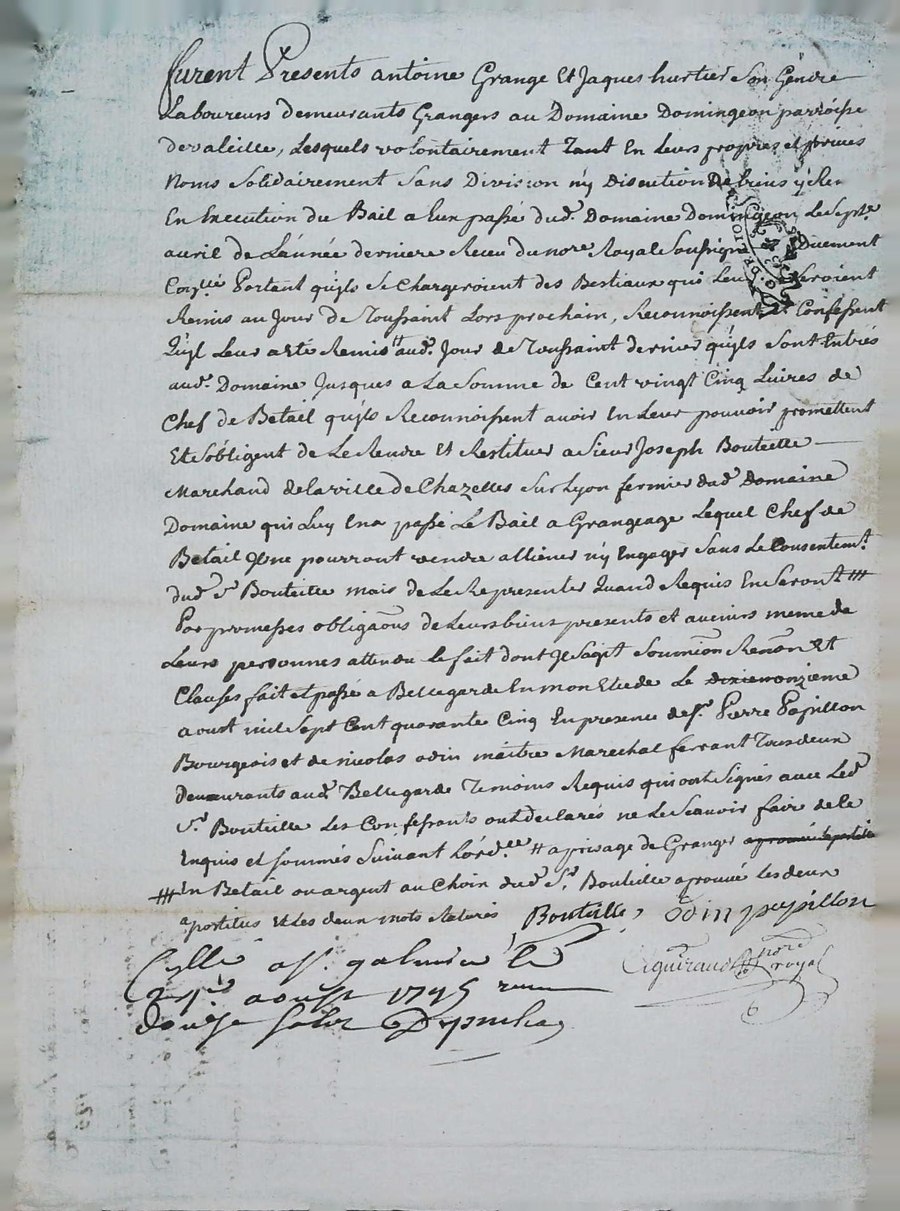 furent Presents antoine Grange Et Jaques hurtier Son Gendre
Laboureurs demeurants Grangers au Domaine Domingeon parroisse
devaleille, Lesquels volontairement Tant En Leurs propres et privés
Noms Solidairement Sans Division n'y Discution de biens
En Execution du Bail a Eux passé dud. Domaine Domingeon Le Septe
avril de L'année derniere Receu du nore Royal Soussigné Duement
Portant qu'jls Se Chargeroient des Bestiaux qui Leur Seroient
Remis au Jour de Toussaint Lors prochain, Reconnoissent et Confessent
Qu'jl Leur a Eté Remis # aud. Jour de Toussaint dernier qu'jls Sont Entrés
aud. Domaine Jusques a La Somme de Cent vingt Cinq Livres de
Chef de Betail qu'jls Reconnoissent avoir En Leur pouvoir promettent
Et S'obligent de Le Rendre Et Restituer a Sieur Joseph Bouteille
Marchand de la ville de Chazelles Sur Lyon fermier dud. Domaine
Domaine qui Luy En a passé Le Bail a Grangeage Lequel Chef de
Betail Jl ne pourront vendre alliener n'y Engager Sans Le Consentemt.
dud. Sr Bouteille mais de Le Representer Quand Requis En Seront #
Par promesses obligaõns de Leurs biens presents et avenirs meme de
Leurs personnes attendu Le fait dont Jl S'agit Soumiõn Renõn Et
Clauses fait et passé a Bellegarde En mon Etude Le dixieme onzieme
aoust mil Sept Cent quarante Cinq En presence de Sr. Pierre Papillon
Bourgeois et de nicolas odin maitre Marechal ferrant Tous deux
demeurants aud. Bellegarde Temoins Requis qui ont Signés avec Led.
Sr. Bouteille Les Confessants ont declarés ne Le Scavoir faire de ce
Enquis et sommés Suivant L'ord.ce # a prisage de Granger
# En Betail ou argent au Choix dud. Sr. Bouteille aprouvé Les deux
apostilles Et Les deux mots Raturés Bouteille, odin papillon
St galmier le
nore royal
aoust 1745
douze sols